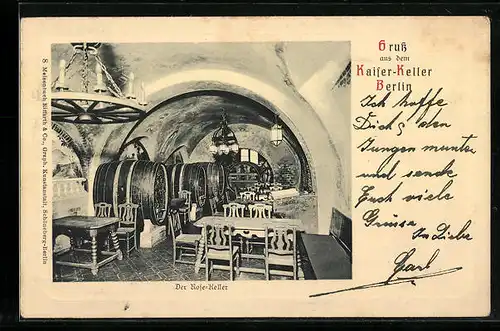 Gruß
aus dem
Kaiser-Keller
Berlin
Ich hoffe
Dich, den
Jungen munter
und sende
Euch viele
Grüsse
In Liebe
Carl
Der Rose-Keller
S Meisenbach Riffarth & Co., Graph. Kunstanstalt, Schöneberg-Berlin